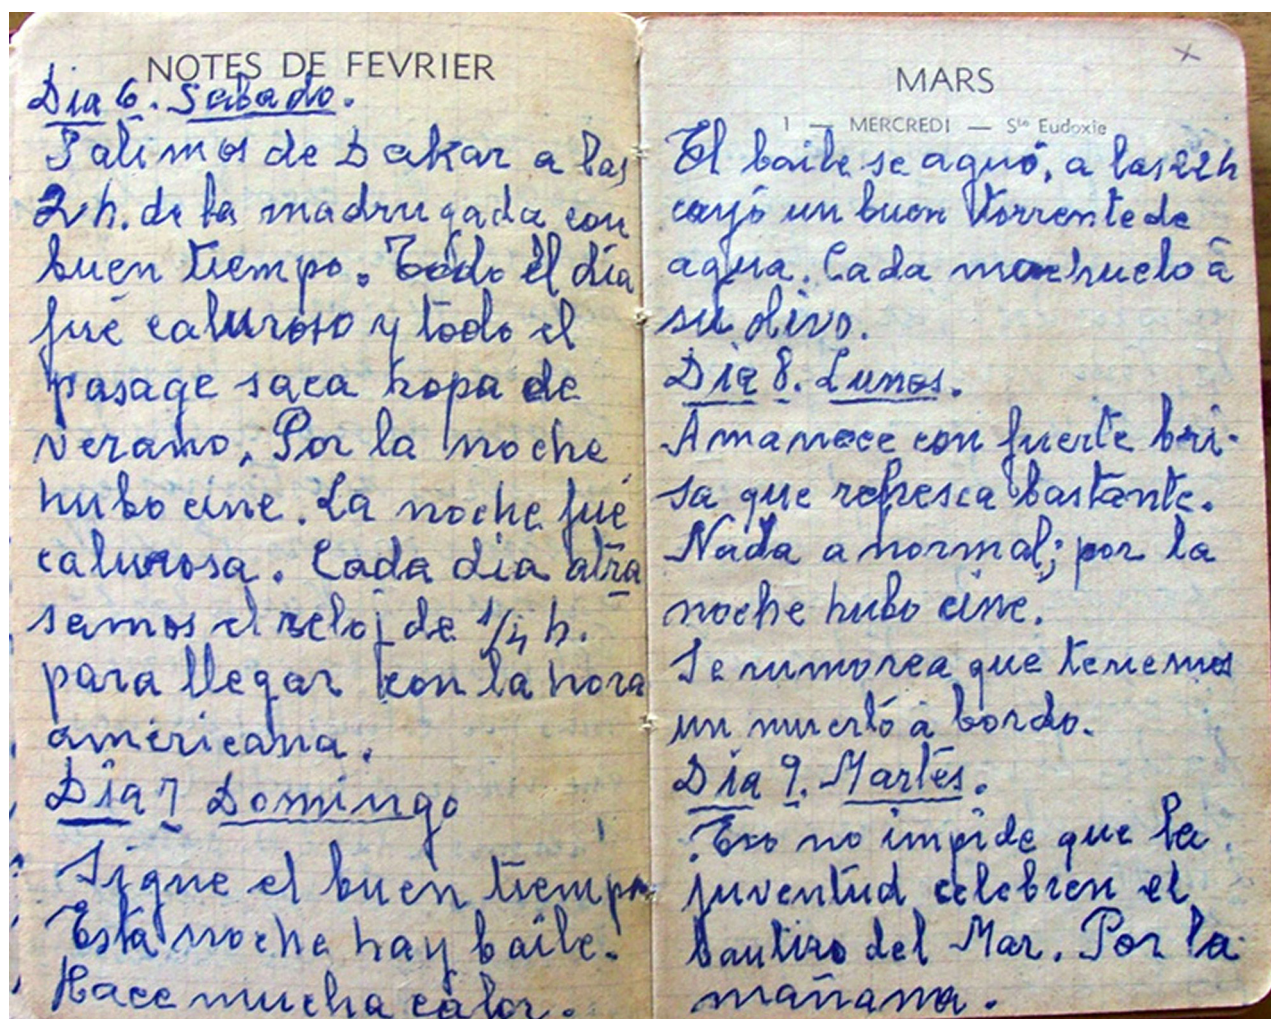 NOTES DE FEVRIER
Dia 6. Sabado.
Salimos de Dakar a las
2h. de la madrugada con
buen tiempo. Todo el día
fué caluroso y todo el
pasage saca ropa de
verano. Por la noche
hubo cine. La noche fué
calurosa. Cada dia atra
samos el reloj de 1/4 h.
para llegar con la hora
americana.
Dia 7 Domingo
Sigue el buen tiempo
Está noche hay baile.
Hace mucha calor.
MARS
1 — MERCREDI — Ste Eudoxie
El baile se aguó, a las 22h
cayó un buen torrente de
agua. Cada mochuelo a
su olivo.
Dia 8. Lunes.
Amanece con fuerte bri-
sa que refresca bastante.
Nada anormal; por la
noche hubo cine.
Se rumorea que tenemos
un muertó a bordo.
Dia 9. Martes.
Eso no impide que la
juventud celebren el
bautizo del Mar. Por la
mañana.